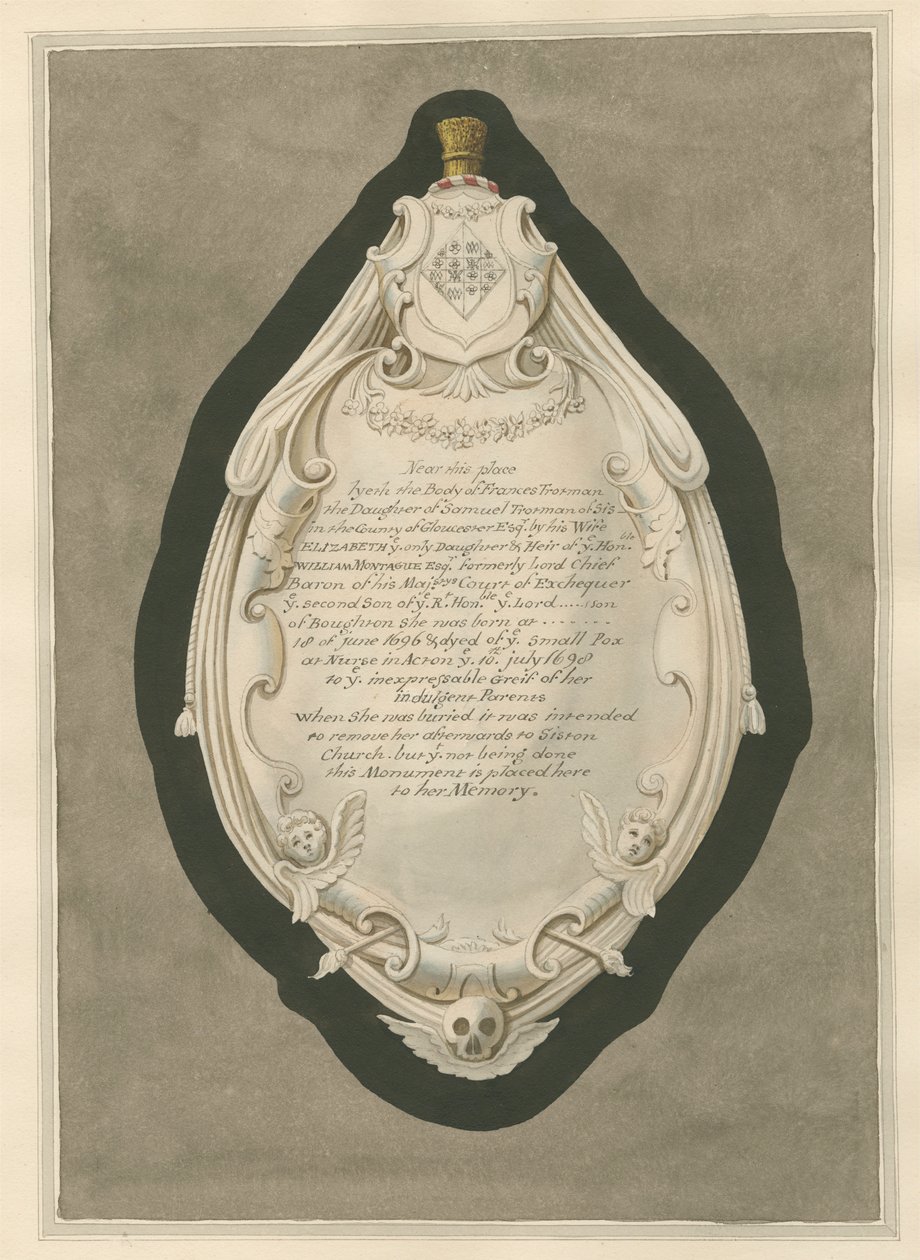 Near this place
lyeth the Body of Frances Trotman
the Daughter of Samuel Trotman of Sis-
in the County of Gloucester Esqr. by his Wife
ELIZABETH ye. only Daughter & Heir of ye. Honble.
WILLIAM MONTAGUE Esqr. formerly Lord Chief
Baron of his Majstys Court of Exchequer
ye. second Son of ye. Rt. Honble. ye. Lord.....son
of Boughton She was born at .......
18 of june 1696 & dyed of ye. Small Pox
at Nurse in Acton ye. 10th. july 1698
to ye. inexpressable Greif of her
indulgent Parents
When She was buried it was intended
to remove her afterwards to Siston
Church. but yt. not being done
this Monument is placed here
to her Memory.